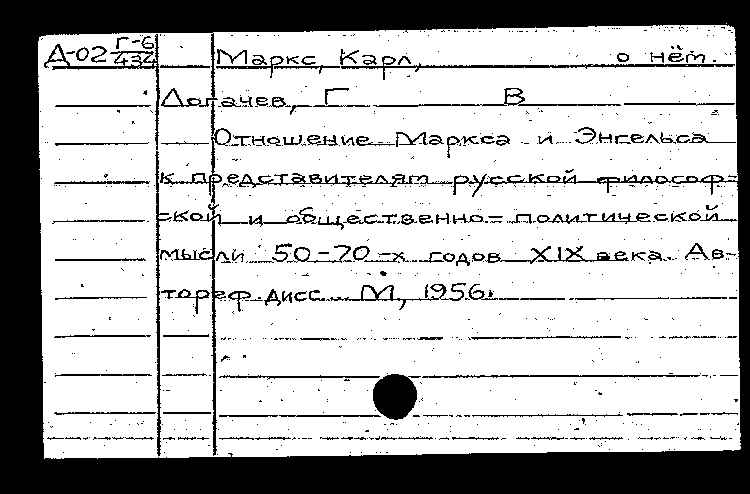 Д-02 Г-6/434 Маркс, Карл, о нём.
Логачев, Г В
Отношение Маркса и Энгельса
к представителям русской философ-
ской и общественно-политической
мысли 50-70-х годов XIX века. Ав-
тореф. дисс. М., 1956.